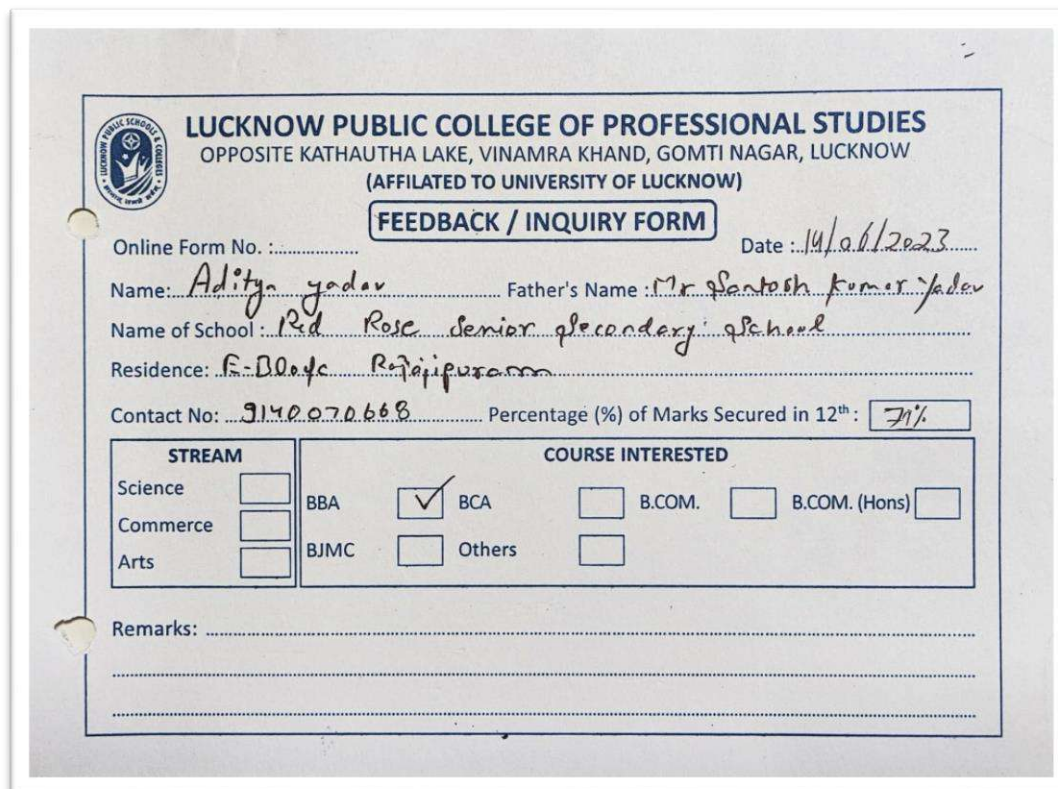 LUCKNOW PUBLIC SCHOOLS & COLLEGES
LUCKNOW PUBLIC COLLEGE OF PROFESSIONAL STUDIES
OPPOSITE KATHAUTHA LAKE, VINAMRA KHAND, GOMTI NAGAR, LUCKNOW
(AFFILATED TO UNIVERSITY OF LUCKNOW)
FEEDBACK / INQUIRY FORM
Online Form No. : Date : 14/06/2023
Name: Aditya yadav Father's Name : Mr Santosh Kumar Yadav
Name of School : Red Rose Senior Secondary School
Residence: E-Block Rajajipuram
Contact No: 9140070668 Percentage (%) of Marks Secured in 12th : 71%
STREAM COURSE INTERESTED
Science BBA ✓ BCA B.COM. B.COM. (Hons)
Commerce
Arts BJMC Others
Remarks: